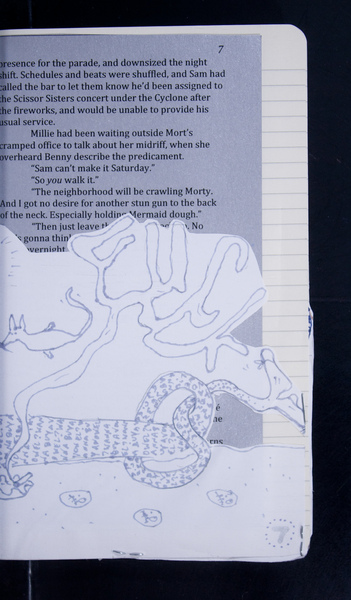 7
presence for the parade, and downsized the night
shift. Schedules and beats were shuffled, and Sam had
called the bar to let them know he'd been assigned to
the Scissor Sisters concert under the Cyclone after
the fireworks, and would be unable to provide his
usual service.
Millie had been waiting outside Mort's
cramped office to talk about her midriff, when she
overheard Benny describe the predicament.
"Sam can't make it Saturday."
"So you walk it."
"The neighborhood will be crawling Morty.
And I got no desire for another stun gun to the back
of the neck. Especially holding Mermaid dough."
"Then just leave No
gonna
7